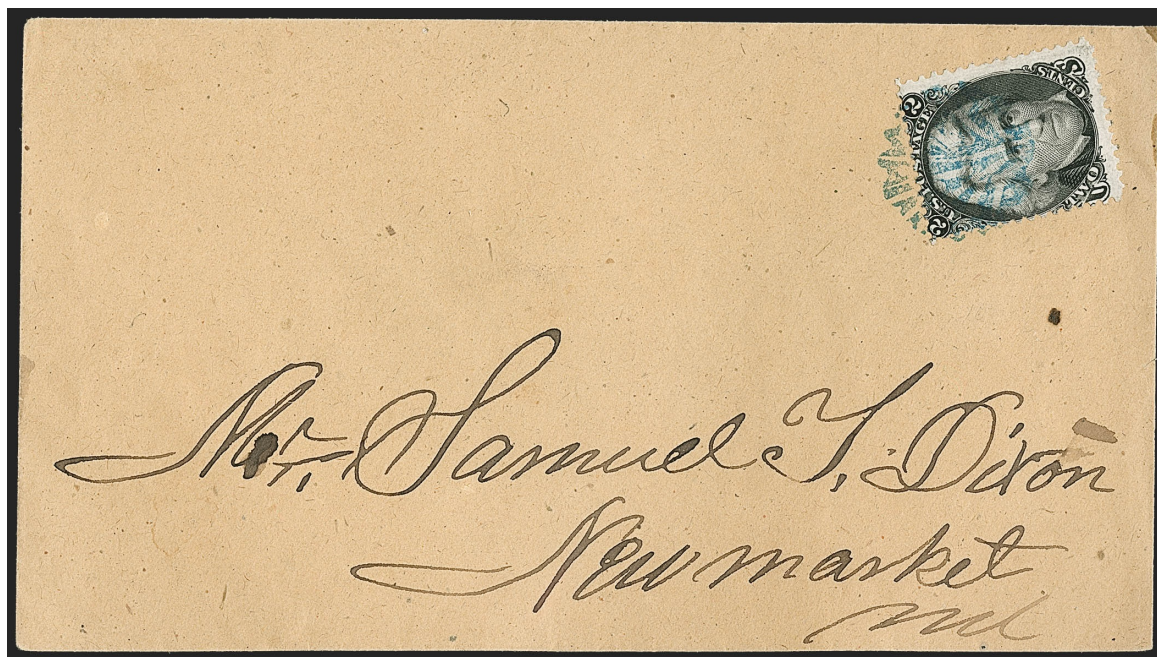 U.S. POSTAGE
2 2
TWO CENTS
Mr. Samuel T. Dixon
Newmarket
md